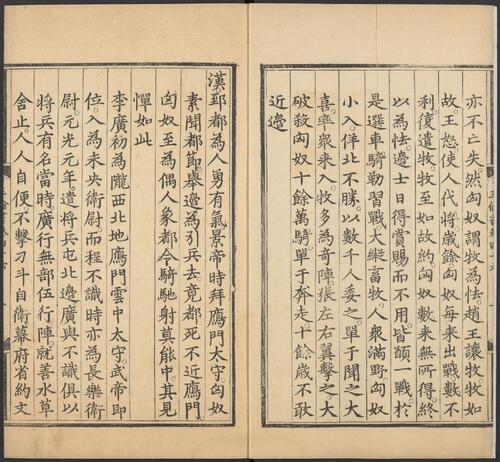 亦不亡失然匈奴謂牧為怯。趙王讓牧牧如
故。王怒使人代將歲餘匈奴每來出戰數不
利。復遣牧。牧至如故約匈奴數來無所得終
以為怯。邊士日得賞賜而不用。皆願一戰。於
是選車騎勤習戰。大縱畜牧。人衆滿野匈奴
小入。佯北不勝。以數千人委之單于聞之大
喜。率衆來入。牧多為奇陣。張左右翼擊之。大
破殺匈奴十餘萬騎。單于奔走。十餘歲不敢
近邊
漢郅都為人勇有氣景帝時拜鴈門太守。匈奴
素聞都節。舉邊為引兵去。竟都死不近鴈門。
匈奴至為偶人象都令騎馳射莫能中。其見
憚如此
李廣初為隴西北地鴈門雲中太守。武帝即
位。入為未央衛尉。而程不識時亦為長樂衛
尉。元光元年。遣將兵屯北邊。廣與不識俱以
將兵有名當時廣行無部伍行陣。就善水草
舍止。人人自便不擊刁斗自衛幕府省約文